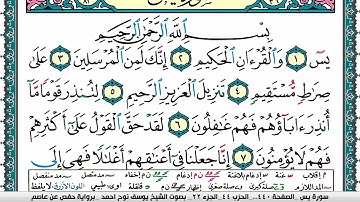 بِسْمِ ٱللَّهِ ٱلرَّحْمَٰنِ ٱلرَّحِيمِ
يسٓ ١ وَٱلْقُرْءَانِ ٱلْحَكِيمِ ٢ إِنَّكَ لَمِنَ ٱلْمُرْسَلِينَ ٣ عَلَىٰ
صِرَٰطٍ مُّسْتَقِيمٍ ٤ تَنزِيلَ ٱلْعَزِيزِ ٱلرَّحِيمِ ٥ لِتُنذِرَ قَوْمًا مَّآ
أُنذِرَ ءَابَآؤُهُمْ فَهُمْ غَٰفِلُونَ ٦ لَقَدْ حَقَّ ٱلْقَوْلُ عَلَىٰٓ أَكْثَرِهِمْ
فَهُمْ لَا يُؤْمِنُونَ ٧ إِنَّا جَعَلْنَا فِىٓ أَعْنَٰقِهِمْ أَغْلَٰلًا فَهِىَ إِلَى
سورة يس الصفحة ٤٤٠ الحزب ٤٤ الجزء ٢٢ بصوت الشيخ يوسف نوح احمد برواية حفص عن عاصم